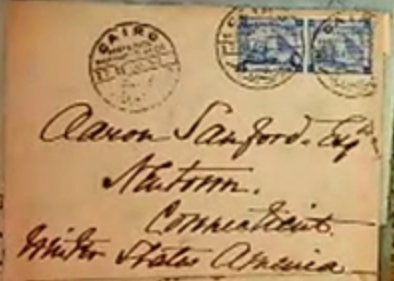 CAIRO
CAIRO
CAIRO
Aaron Sanford. Esqʳᵉ
Newtown.
Connecticut.
United States America